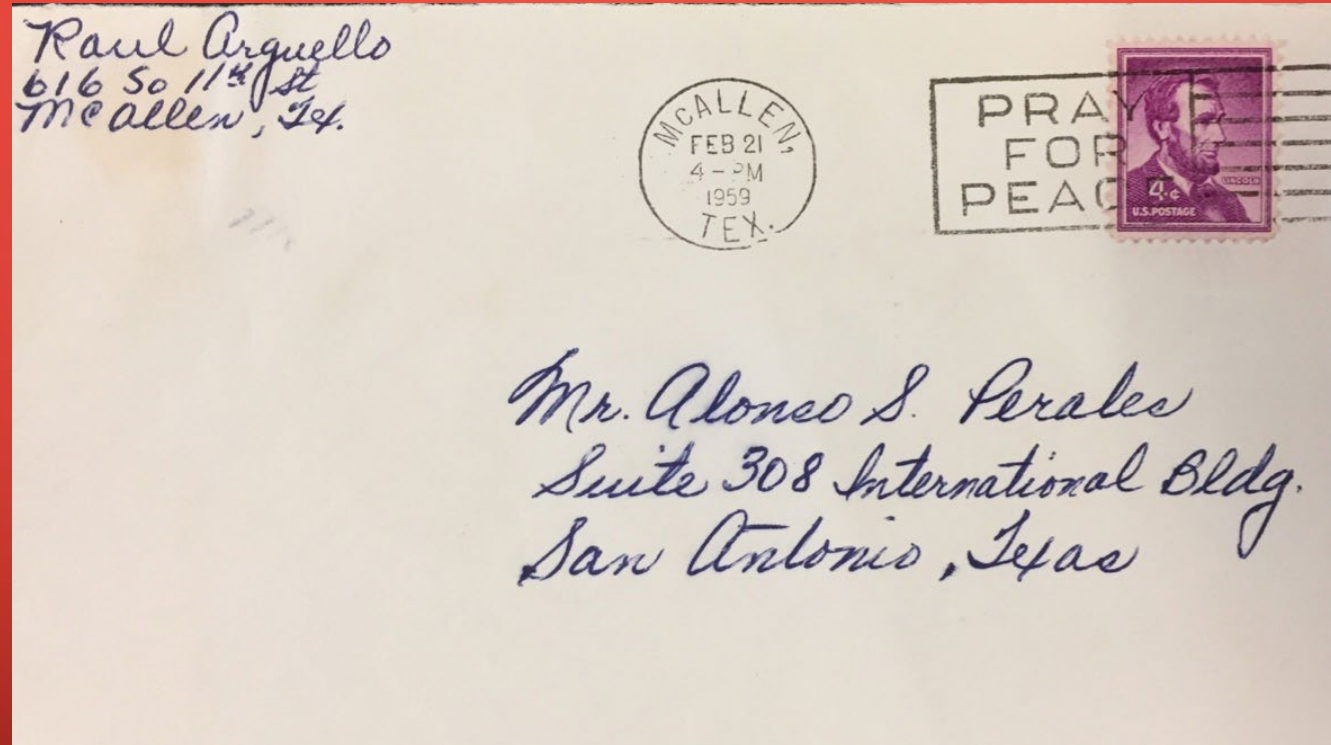 Raul Arguello
616 So 11th St
McAllen, Tex.
MCALLEN,
FEB 21
4 - PM
1959
TEX.
PRAY
FOR
PEACE
LINCOLN
4¢
U.S. POSTAGE
Mr. Alonso S. Perales
Suite 308 International Bldg.
San Antonio, Texas